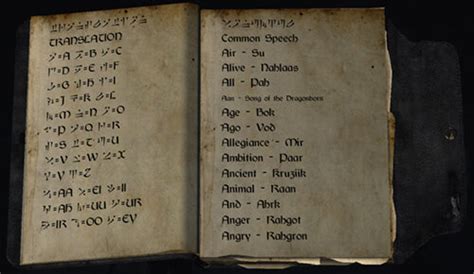 TRANSLATION
=A =B =C
=D =E =F
=G =H =I
=J =K =L
=M =N =O
=P =Q =R
=S =T =U
=V =W =X
=Y =Z
=AA =EI =II
=AH =UU =UR
=IR =OO =EY
Common Speech
Air - Su
Alive - Nahlaas
All - Pah
Aan - Song of the Dragonborn
Age - Bok
Ago - Vod
Allegiance - Mir
Ambition - Paar
Ancient - Kruziik
Animal - Raan
And - Ahrk
Anger - Rahgot
Angry - Rahgron